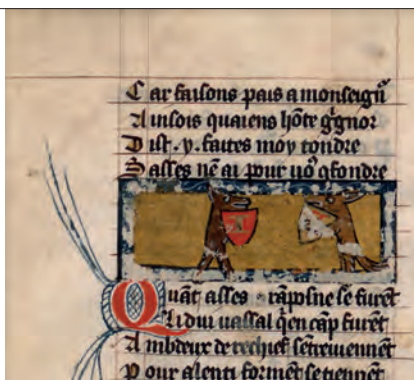 Car faisons pais a monseignᷣ
Ainsois quaiens hōte g̾gnor
Dist .y. faites moy tondre
Sasses nē ai pour uo⁹ ꝯfondre
Quāt asses raposne se furēt
Li dui uassal q̄ en cāp furēt
Ambdeux de rechief
Pour alenti formēt se tiennēt